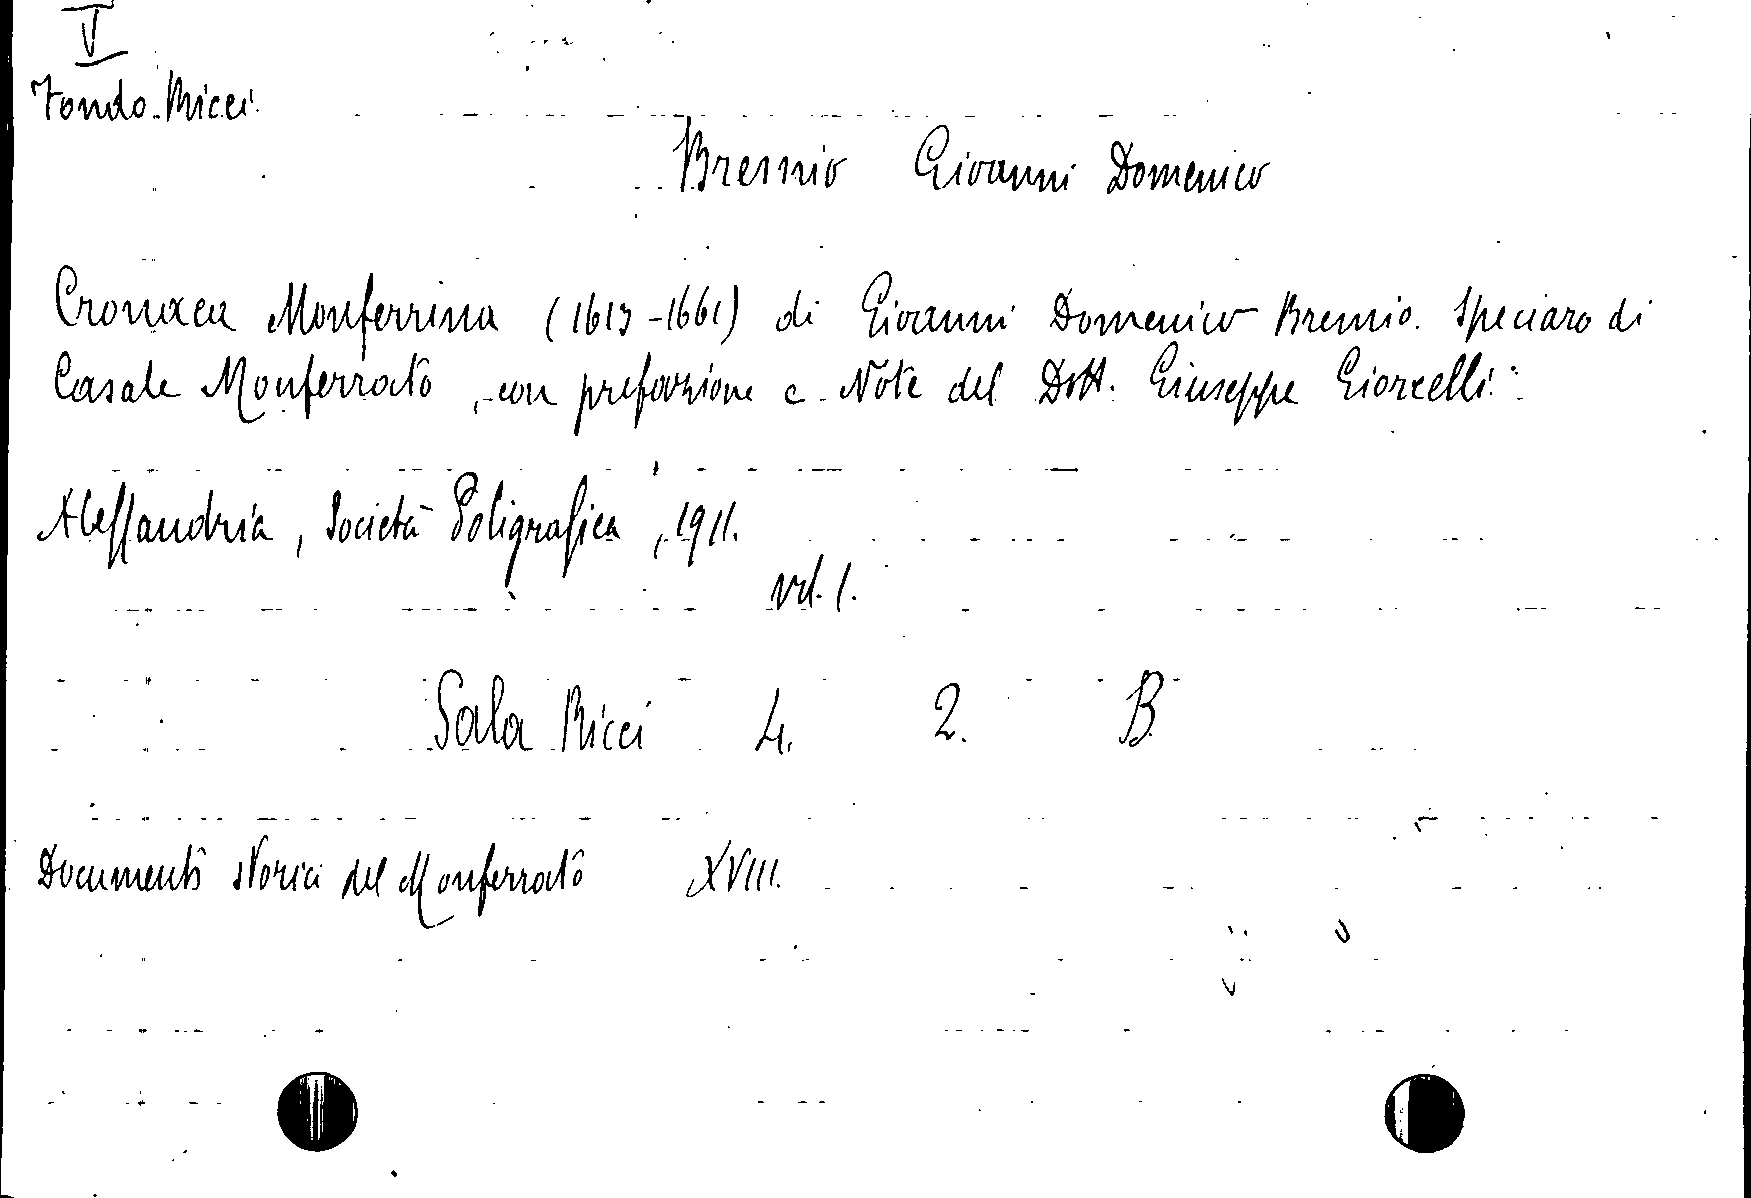 V
Fondo Ricci
Bremio Giovanni Domenico
Cronaca Monferrina (1613-1661) di Giovanni Domenico Bremio. Speciaro di
Casale Monferrato, con prefazione e Note del Dott. Giuseppe Giorcelli.
Alessandria, Società Poligrafica, 1911.
vol. 1.
Sala Ricci 4. 2. B
Documenti storici del Monferrato XVIII.